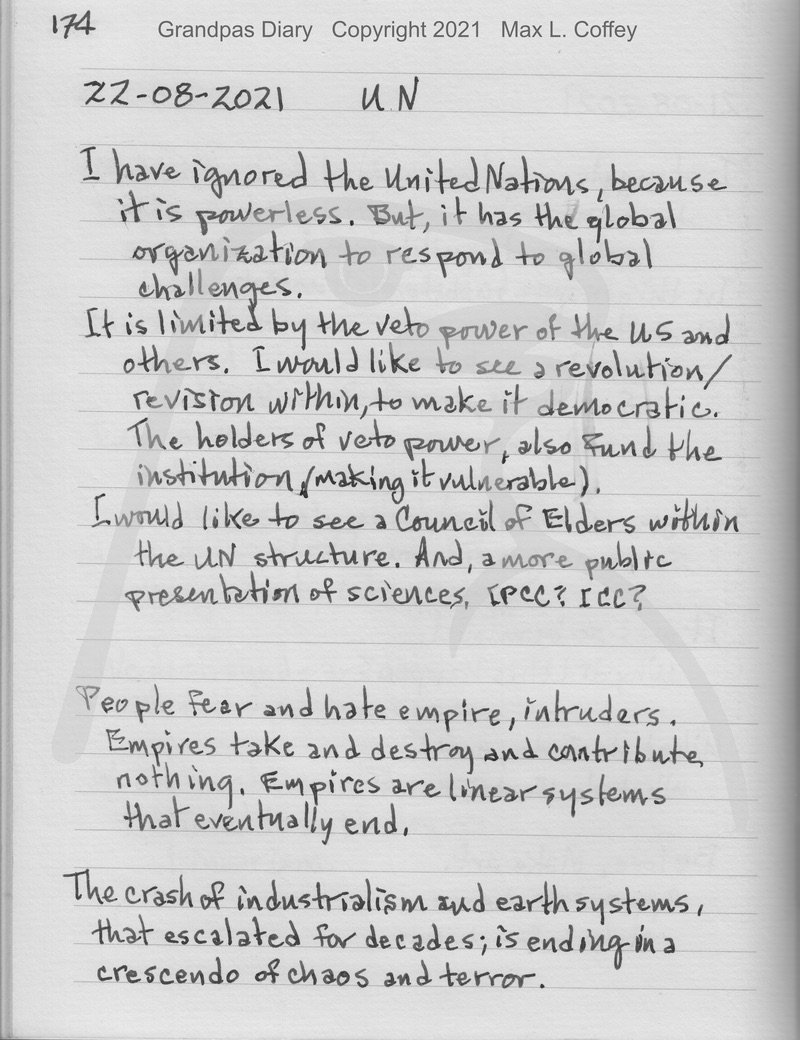 174
Grandpas Diary Copyright 2021 Max L. Coffey
22-08-2021 UN
I have ignored the United Nations, because
it is powerless. But, it has the global
organization to respond to global
challenges.
It is limited by the veto power of the US and
others. I would like to see a revolution/
revision within, to make it democratic.
The holders of veto power, also fund the
institution, (making it vulnerable).
I would like to see a Council of Elders within
the UN structure. And, a more public
presentation of sciences, IPCC? ICC?
People fear and hate empire, intruders.
Empires take and destroy and contribute
nothing. Empires are linear systems
that eventually end.
The crash of industrialism and earth systems,
that escalated for decades; is ending in a
crescendo of chaos and terror.